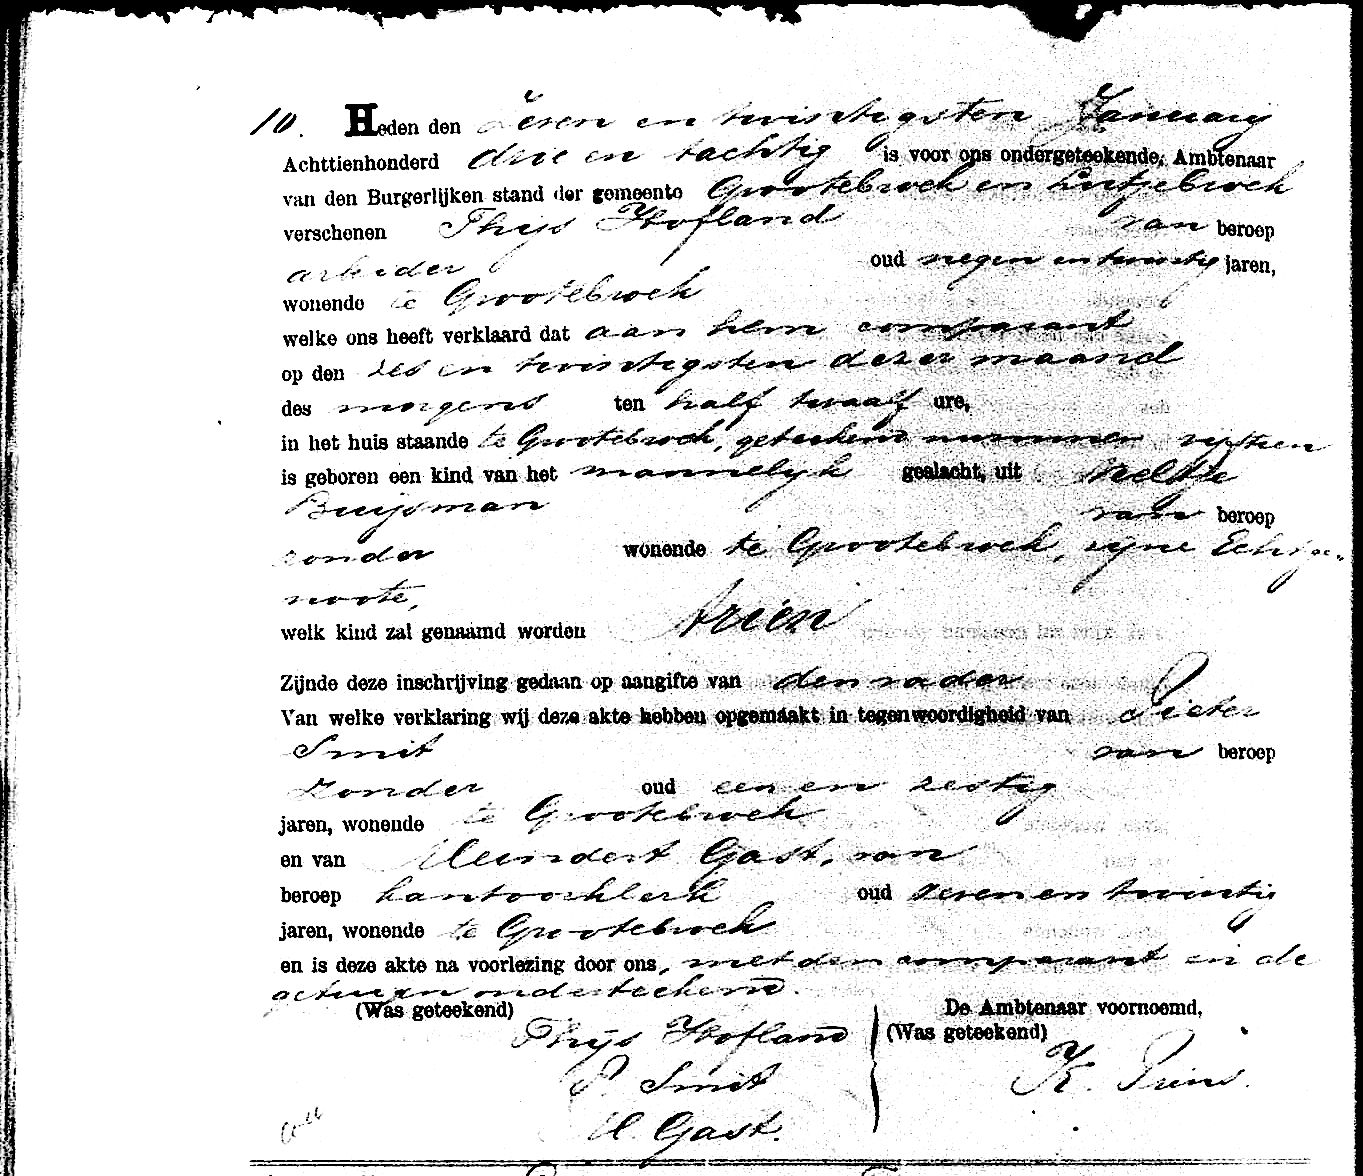 10. Heden den Zeven en twintigsten Januarij
Achttienhonderd drie en tachtig is voor ons ondergeteekende, Ambtenaar
van den Burgerlijken stand der gemeente Grootebroek en Lutjebroek
verschenen Thijs Hofland van beroep
arbeider oud negen en twintig jaren,
wonende te Grootebroek
welke ons heeft verklaard dat aan hem comparant
op den zes en twintigsten dezer maand
des morgens ten half twaalf ure,
in het huis staande te Grootebroek, geteekend nummer vijftien
is geboren een kind van het mannelijk geslacht, uit Neeltje
Buijsman van beroep
zonder wonende te Grootebroek, zijne Echtge-
noote,
welk kind zal genaamd worden Arien
Zijnde deze inschrijving gedaan op aangifte van den vader
Van welke verklaring wij deze akte hebben opgemaakt in tegenwoordigheid van Pieter
Smit van beroep
zonder oud een en zestig
jaren, wonende te Grootebroek
en van Meindert Gast, van
beroep kantoorklerk oud zeven en twintig
jaren, wonende te Grootebroek
en is deze akte na voorlezing door ons, met den comparant en de
getuigen onderteekend.
(Was geteekend) De Ambtenaar voornoemd,
Thijs Hofland (Was geteekend)
P. Smit K. Prins.
M. Gast.